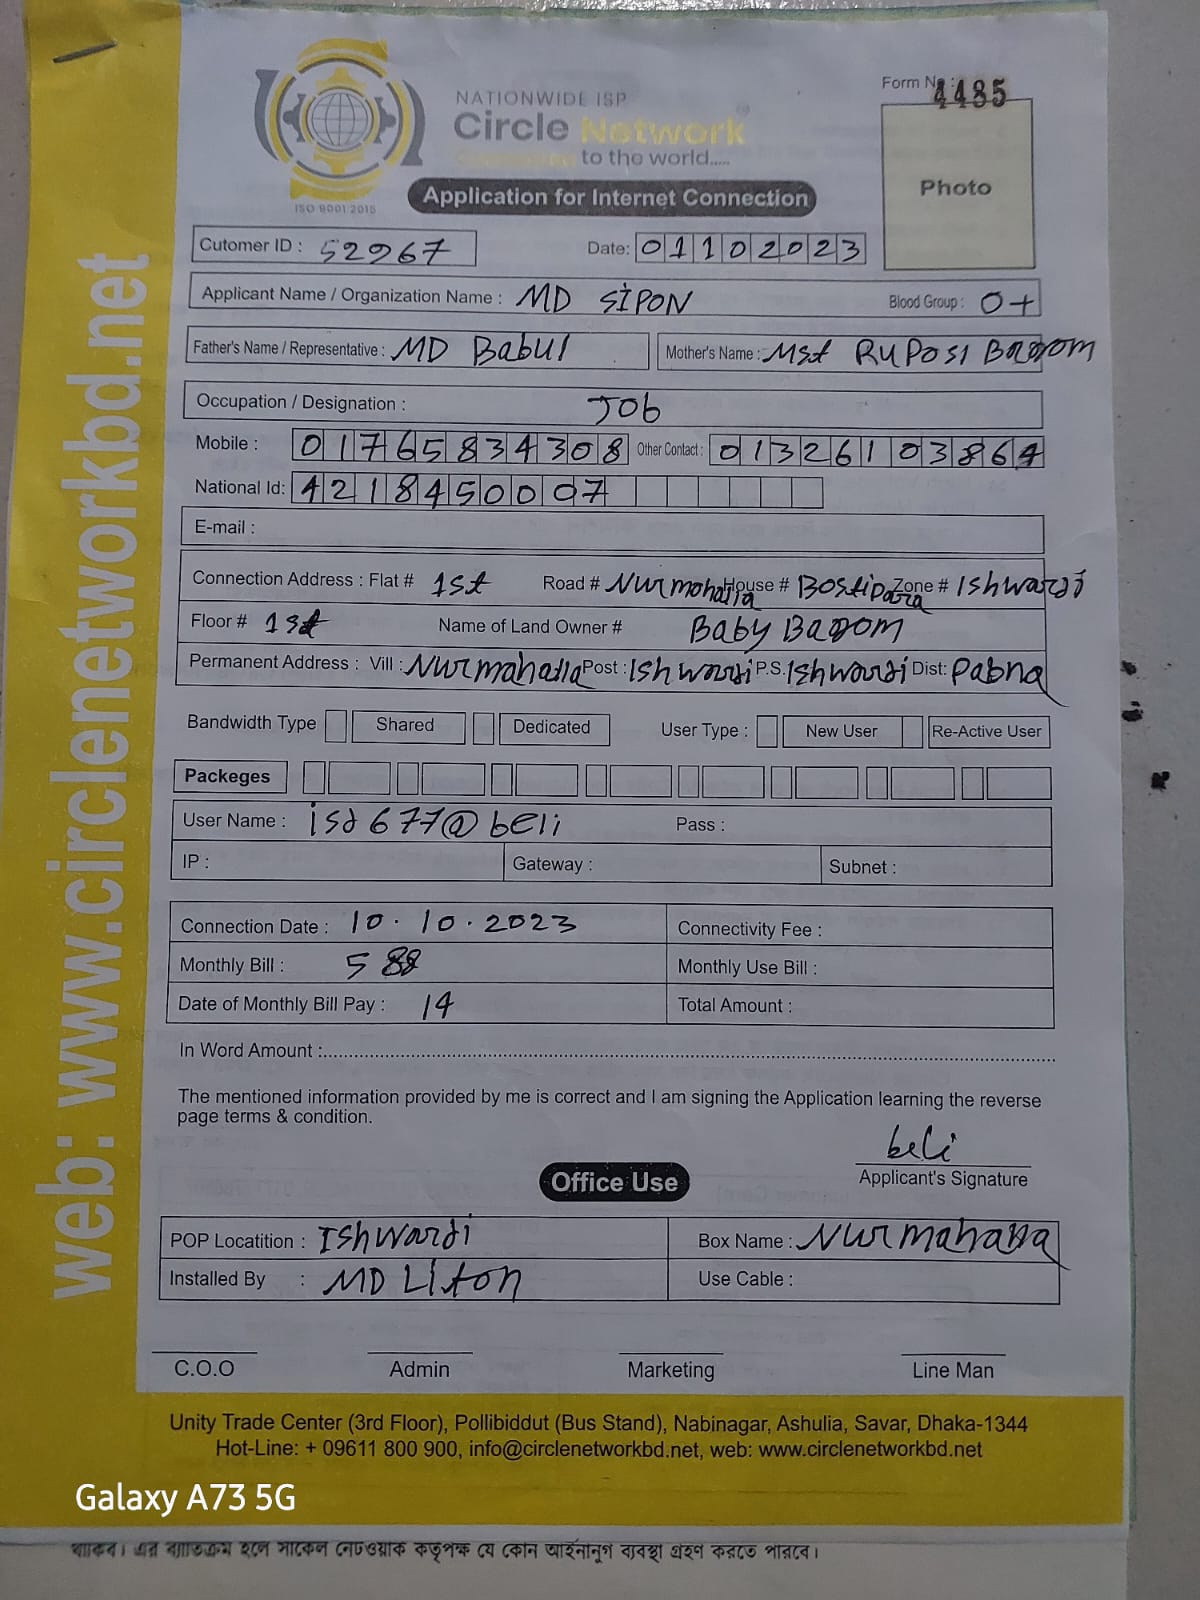 NATIONWIDE ISP
Circle Network
to the world.....
ISO 9001:2015
Form No : 4485
Photo
Application for Internet Connection
Cutomer ID : 52967
Date: 01102023
Applicant Name / Organization Name : MD SIPON
Blood Group : O+
Father's Name / Representative : MD Babul
Mother's Name : Mst RUPOSI
Occupation / Designation : Job
Mobile : 01765834308 Other Contact : 01326103864
National Id: 4218450007
E-mail :
Connection Address : Flat # 1st Road # Nurmohalla House # Bostipara Zone # Ishwardi
Floor # 1st Name of Land Owner # Baby
Permanent Address : Vill : Nurmahalla Post : Ishwardi P.S. Ishwardi Dist: Pabna
Bandwidth Type Shared Dedicated User Type : New User Re-Active User
Packeges
User Name : isd677@beli Pass :
IP : Gateway : Subnet :
Connection Date : 10.10.2023 Connectivity Fee :
Monthly Bill : 588 Monthly Use Bill :
Date of Monthly Bill Pay : 14 Total Amount :
In Word Amount :
The mentioned information provided by me is correct and I am signing the Application learning the reverse
page terms & condition.
beli
Applicant's Signature
Office Use
POP Locatition : Ishwardi Box Name : Nurmahalla
Installed By : MD Liton Use Cable :
C.O.O Admin Marketing Line Man
Unity Trade Center (3rd Floor), Pollibiddut (Bus Stand), Nabinagar, Ashulia, Savar, Dhaka-1344
Hot-Line: + 09611 800 900, info@circlenetworkbd.net, web: www.circlenetworkbd.net
web: www.circlenetworkbd.net
Galaxy A73 5G
থাকিব। এর ব্যতিক্রম হলে সার্কেল নেটওয়ার্ক কর্তৃপক্ষ যে কোন আইনানুগ ব্যবস্থা গ্রহণ করতে পারবে।